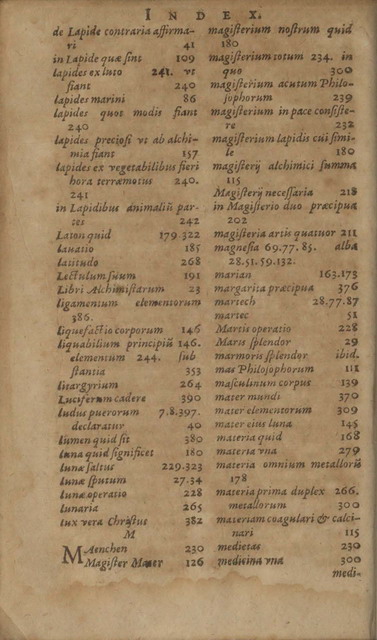 INDEX.
de Lapide contraria affirma-
ri 41
in Lapide quæ sint 109
lapides ex luto 241. vt
fiant 240
lapides marini 86
lapides quot modis fiant
240
lapides preciosi vt ab alchi-
mia fiant 157
lapides ex vegetabilibus fieri
hora terræmotus 240.
241
in Lapidibus animaliũ par-
tes 242
Laton quid 179.322
lauatio 185
latitudo 268
Lectulum suum 191
Libri Alchimistarum 23
ligamentum elementorum
386.
liquefactio corporum 146
liquabilium principiũ 146.
elementum 244. sub
stantia 353
litargyrium 264
Luciferum cadere 390
ludus puerorum 7.8.397.
declaratur 40
lumen quid sit 380
luna quid significet 180
lunæ saltus 229.323
lunæ sputum 27.34
lunæ operatio 228
lunaria 265
lux vera Christus 382
M
MAenchen 230
Magister Mater 126
magisterium nostrum quid
180
magisterium totum 234. in
quo 300
magisterium acutum Philo-
sophorum 239
magisterium in pace consiste-
re 232
magisterium lapidis cui simi-
le 180
magisterij alchimici summa
115
Magisterij necessaria 218
in Magisterio duo præcipua
202
magisteria artis quatuor 211
magnesia 69.77.85. alba
28.51.59.132.
marian 163.173
margarita præcipua 376
martech 28.77.87
martec 51
Martis operatio 228
Maris splendor 29
marmoris splendor ibid.
mas Philosophorum 111
masculinum corpus 139
mater mundi 370
mater elementorum 309
mater eius luna 145
materia quid 168
materia vna 279
materia omnium metallorũ
178
materia prima duplex 266.
metallorum 300
materiam coagulari & calci-
nari 115
medietas 230
medicina vna 300
medi-